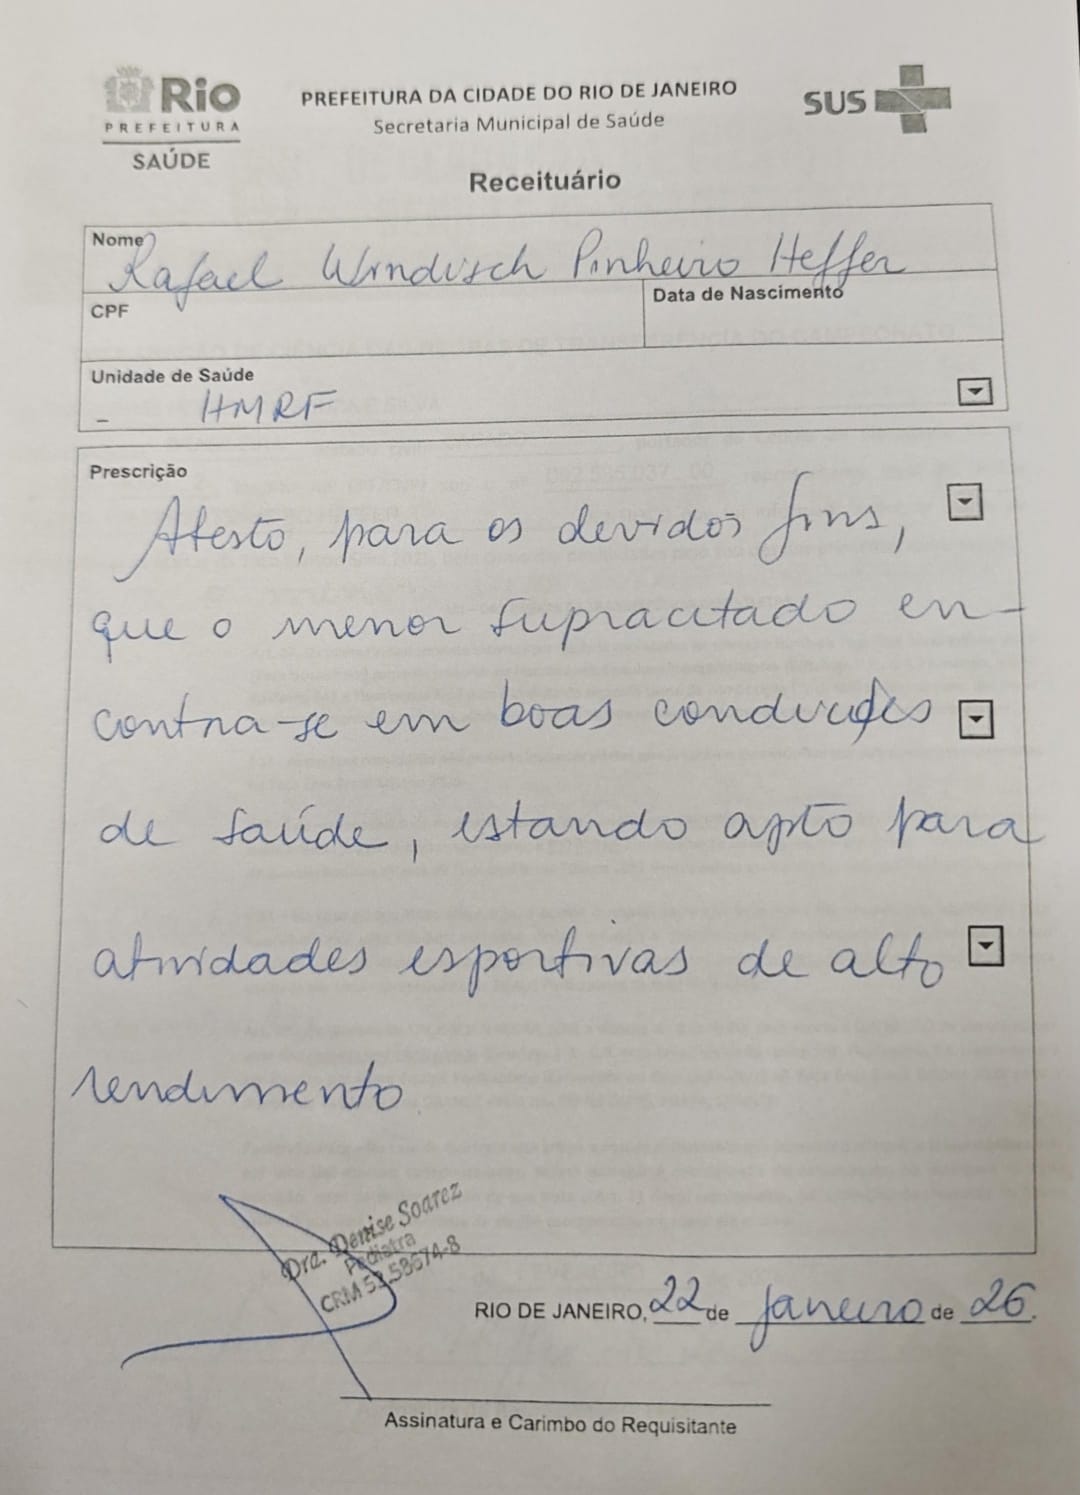 Rio
PREFEITURA
SAÚDE
PREFEITURA DA CIDADE DO RIO DE JANEIRO
Secretaria Municipal de Saúde
SUS
Receituário
Nome
Rafael Windisch Pinheiro Heffer
CPF
Data de Nascimento
Unidade de Saúde
- HMRF
Prescrição
Atesto, para os devidos fins,
que o menor supracitado en-
contra-se em boas condições
de saúde, estando apto para
atividades esportivas de alto
rendimento
Dra. Denise Soarez
Pediatra
CRM 52.58674-8
RIO DE JANEIRO, 22 de janeiro de 26.
Assinatura e Carimbo do Requisitante